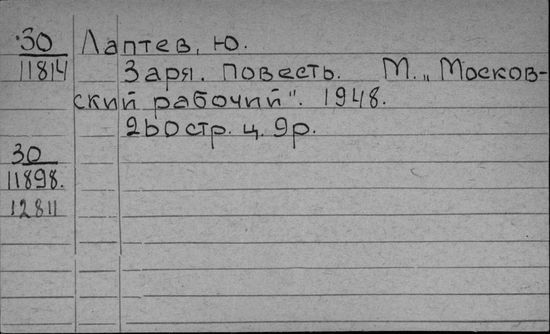 30 Лаптев, Ю.
11814 Заря. Повесть. М. „Москов-
ский рабочий". 1948.
260 стр. ц. 9р.
30
11898.
12811